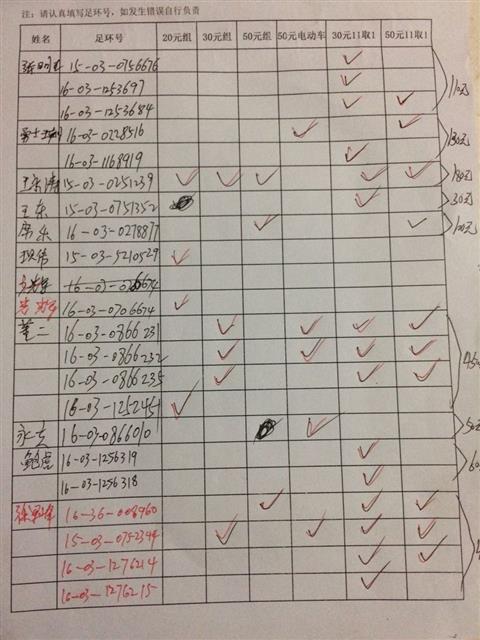 注：请认真填写足环号，如发生错误自行负责
姓名 足环号 20元组 30元组 50元组 50元电动车 30元11取1 50元11取1
15-03-0756676 ✓
16-03-1253697 ✓
16-03-1253684 ✓ ✓ 110元
16-03-0228516 ✓ ✓ 130元
16-03-1168919 ✓
15-03-0251239 ✓ ✓ ✓ ✓ ✓ 180元
王东 15-03-0751352 ✓ 30元
席东 16-03-0278877 ✓ ✓ 100元
15-03-5210529 ✓
16-03-0706674 ✓
董二 16-03-0866231 ✓ ✓ ✓ ✓
16-03-0866232 ✓ ✓ ✓ ✓
16-03-0866235 ✓ ✓ ✓
16-03-1252451 ✓
16-03-0866010 ✓
鲍虎 16-03-1256319 ✓
16-03-1256318 ✓
16-36-008960 ✓ ✓ ✓
15-03-0752344 ✓ ✓ ✓ ✓
16-03-1276214 ✓ ✓
16-03-1276215 ✓